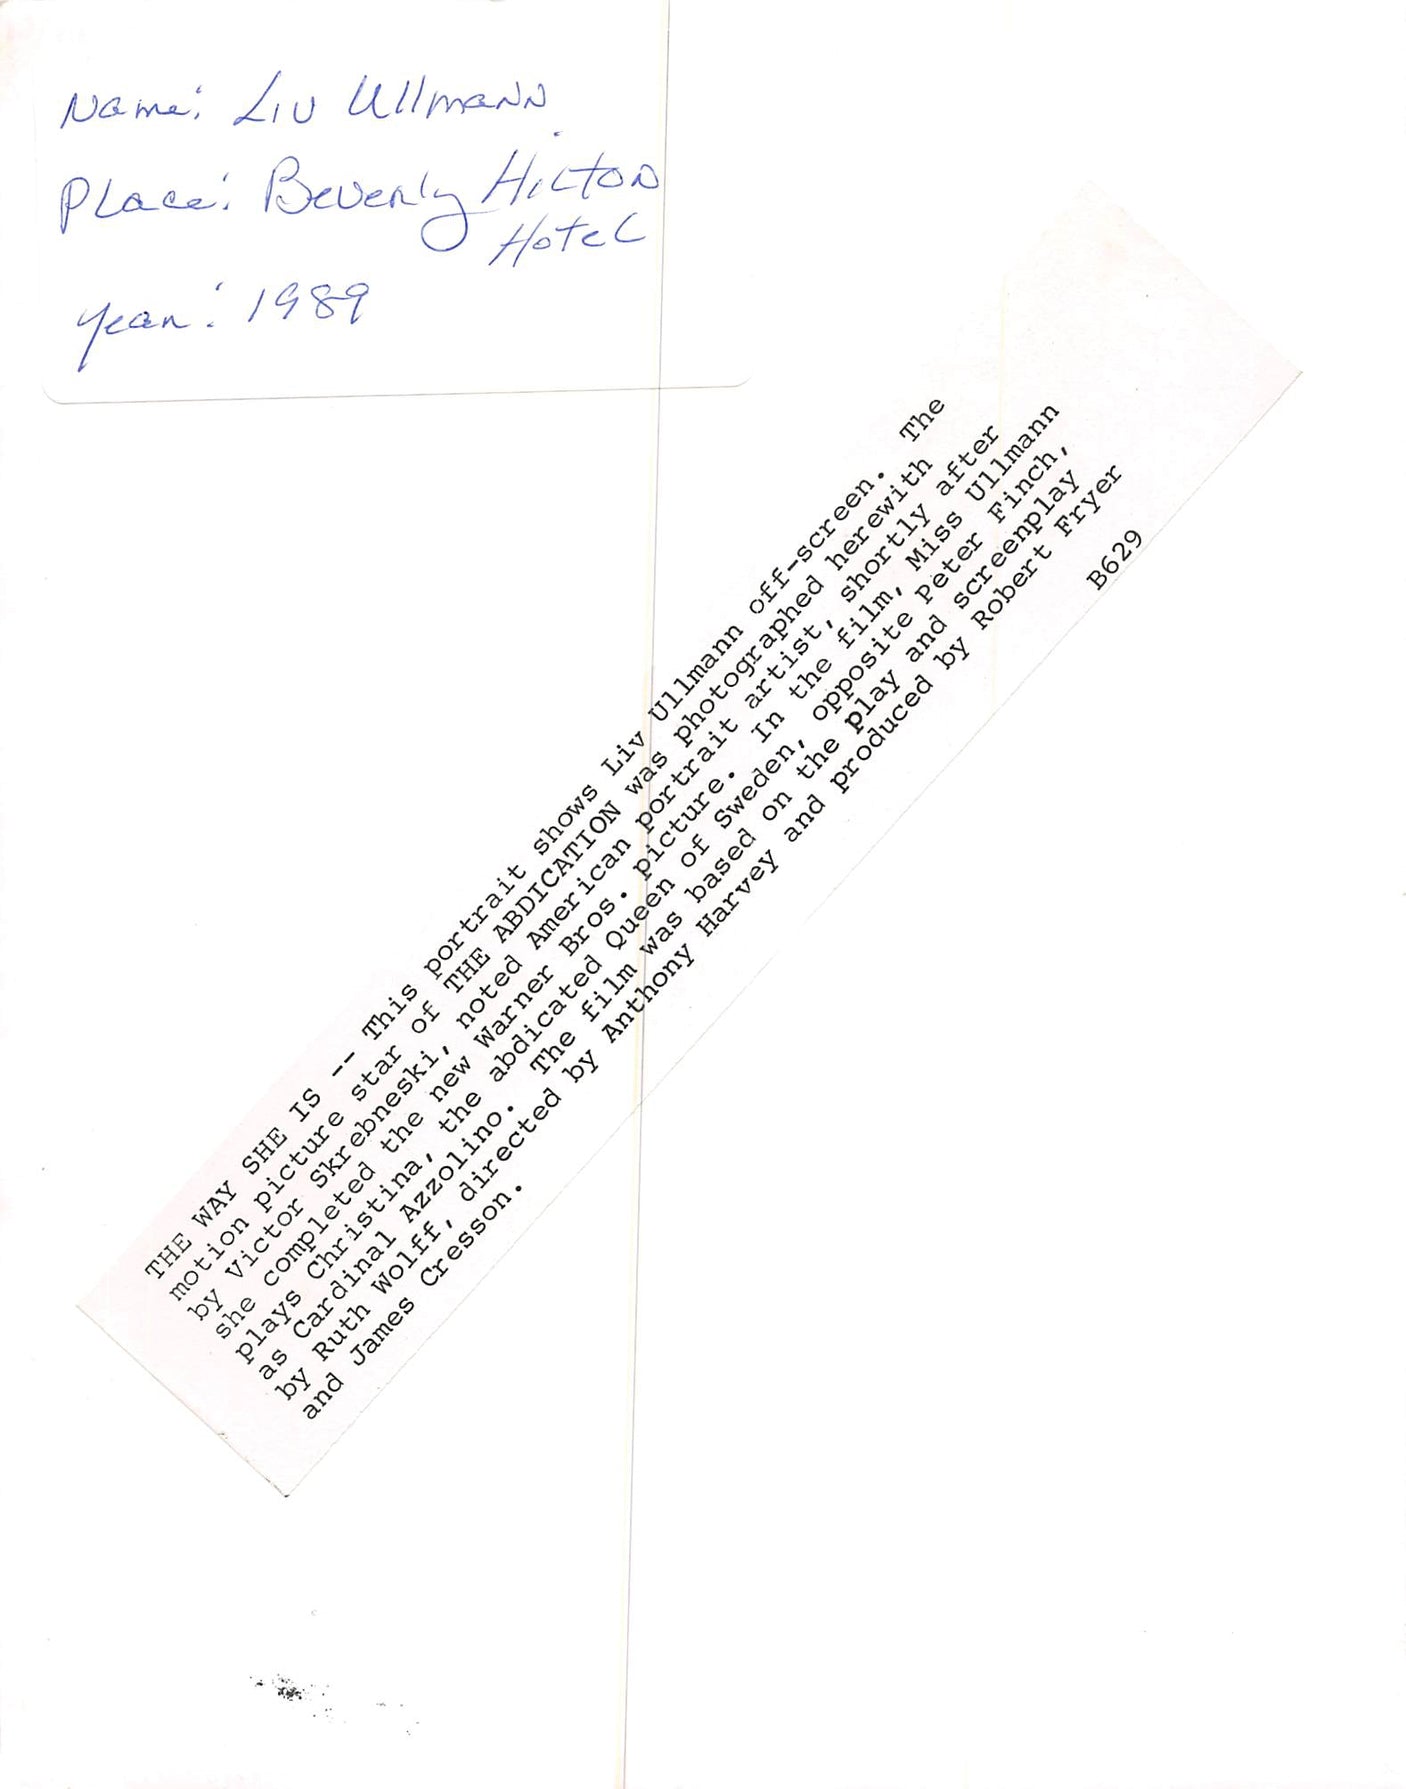 Name: Liv Ullmann
Place: Beverly Hilton
Hotel
Year: 1989
THE WAY SHE IS -- This portrait shows Liv Ullmann off-screen. The
motion picture star of THE ABDICATION was photographed herewith
by Victor Skrebneski, noted American portrait artist, shortly after
she completed the new Warner Bros. picture. In the film, Miss Ullmann
plays Christina, the abdicated Queen of Sweden, opposite Peter Finch,
as Cardinal Azzolino. The film was based on the play and screenplay
by Ruth Wolff, directed by Anthony Harvey and produced by Robert Fryer
and James Cresson.
B629